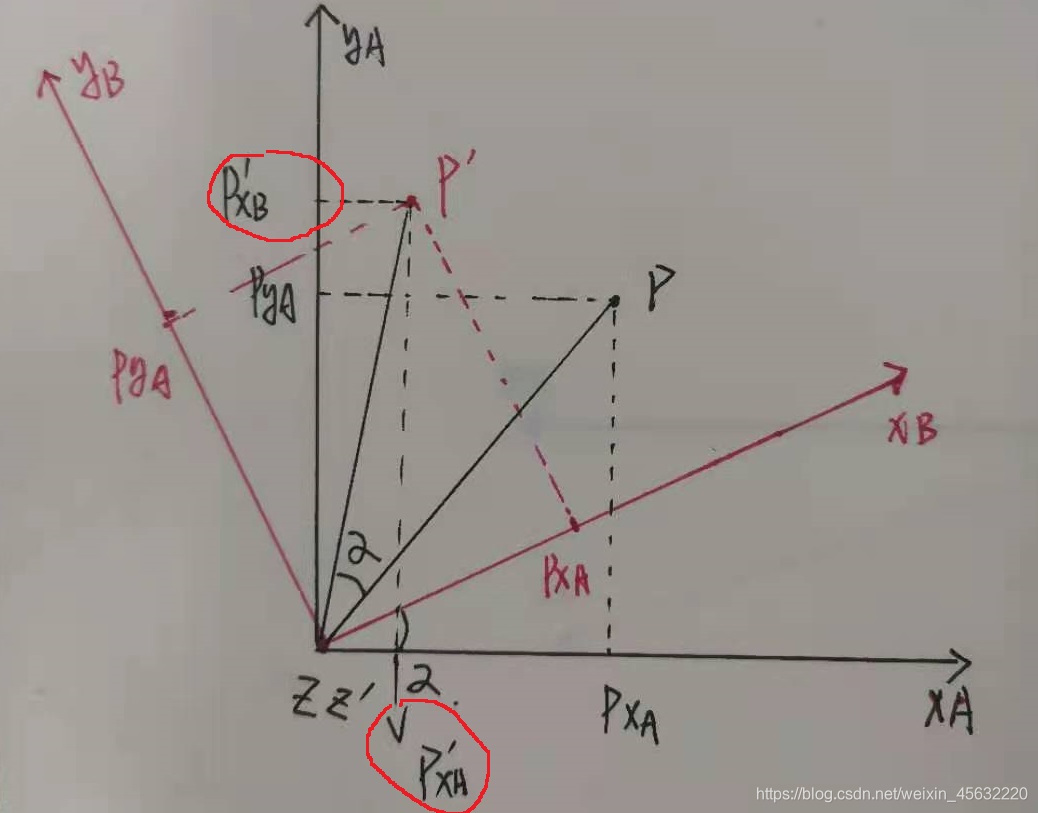 yA
yB
P'xB
P'
PyA
P
PyA
xB
α
PxA
z z'
α
PxA
xA
P'xA
https://blog.csdn.net/weixin_45632220